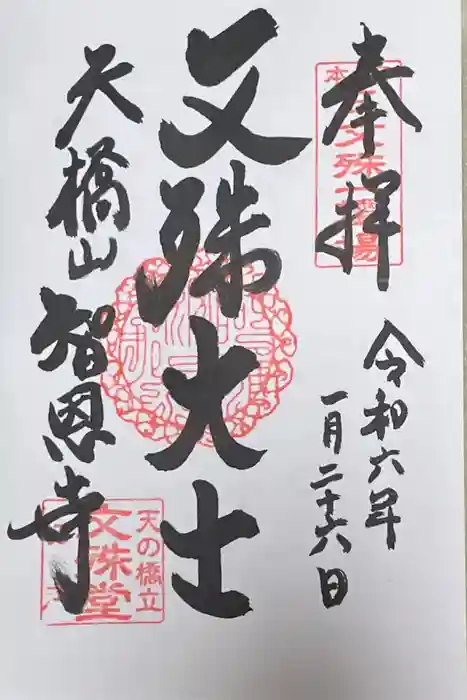 奉拝
令和六年
一月二十六日
文殊大士
天橋山智恩寺
天の橋立
文殊堂